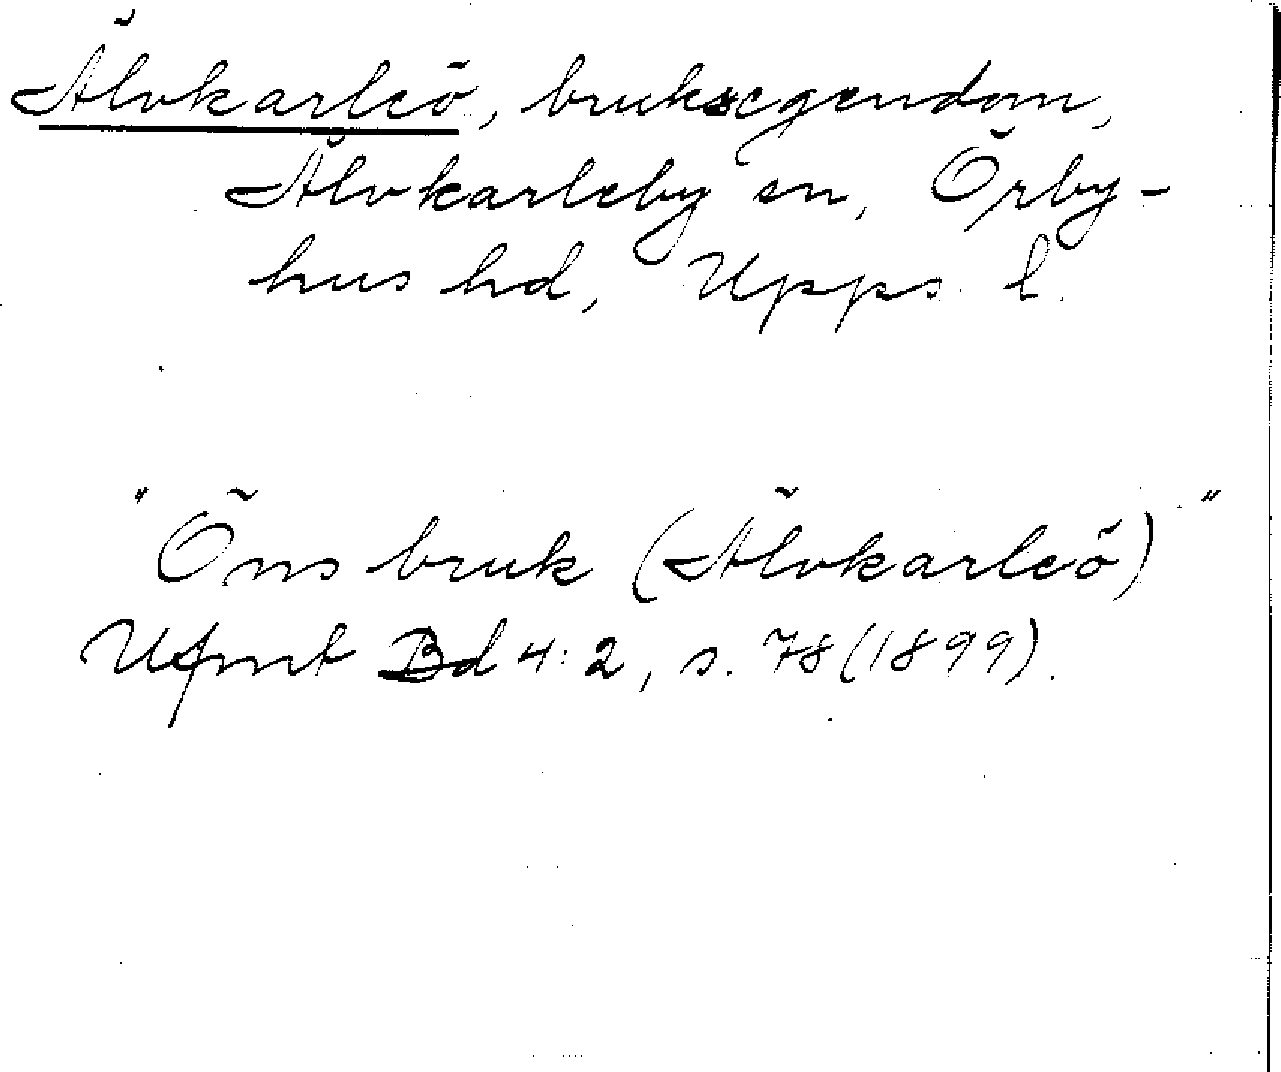 Älvkarleö, bruksegendom,
Älvkarleby sn, Örby-
hus hd, Upps. l.
"Öns bruk (Älvkarleö)"
Ufmt Bd 4:2, s. 78 (1899).